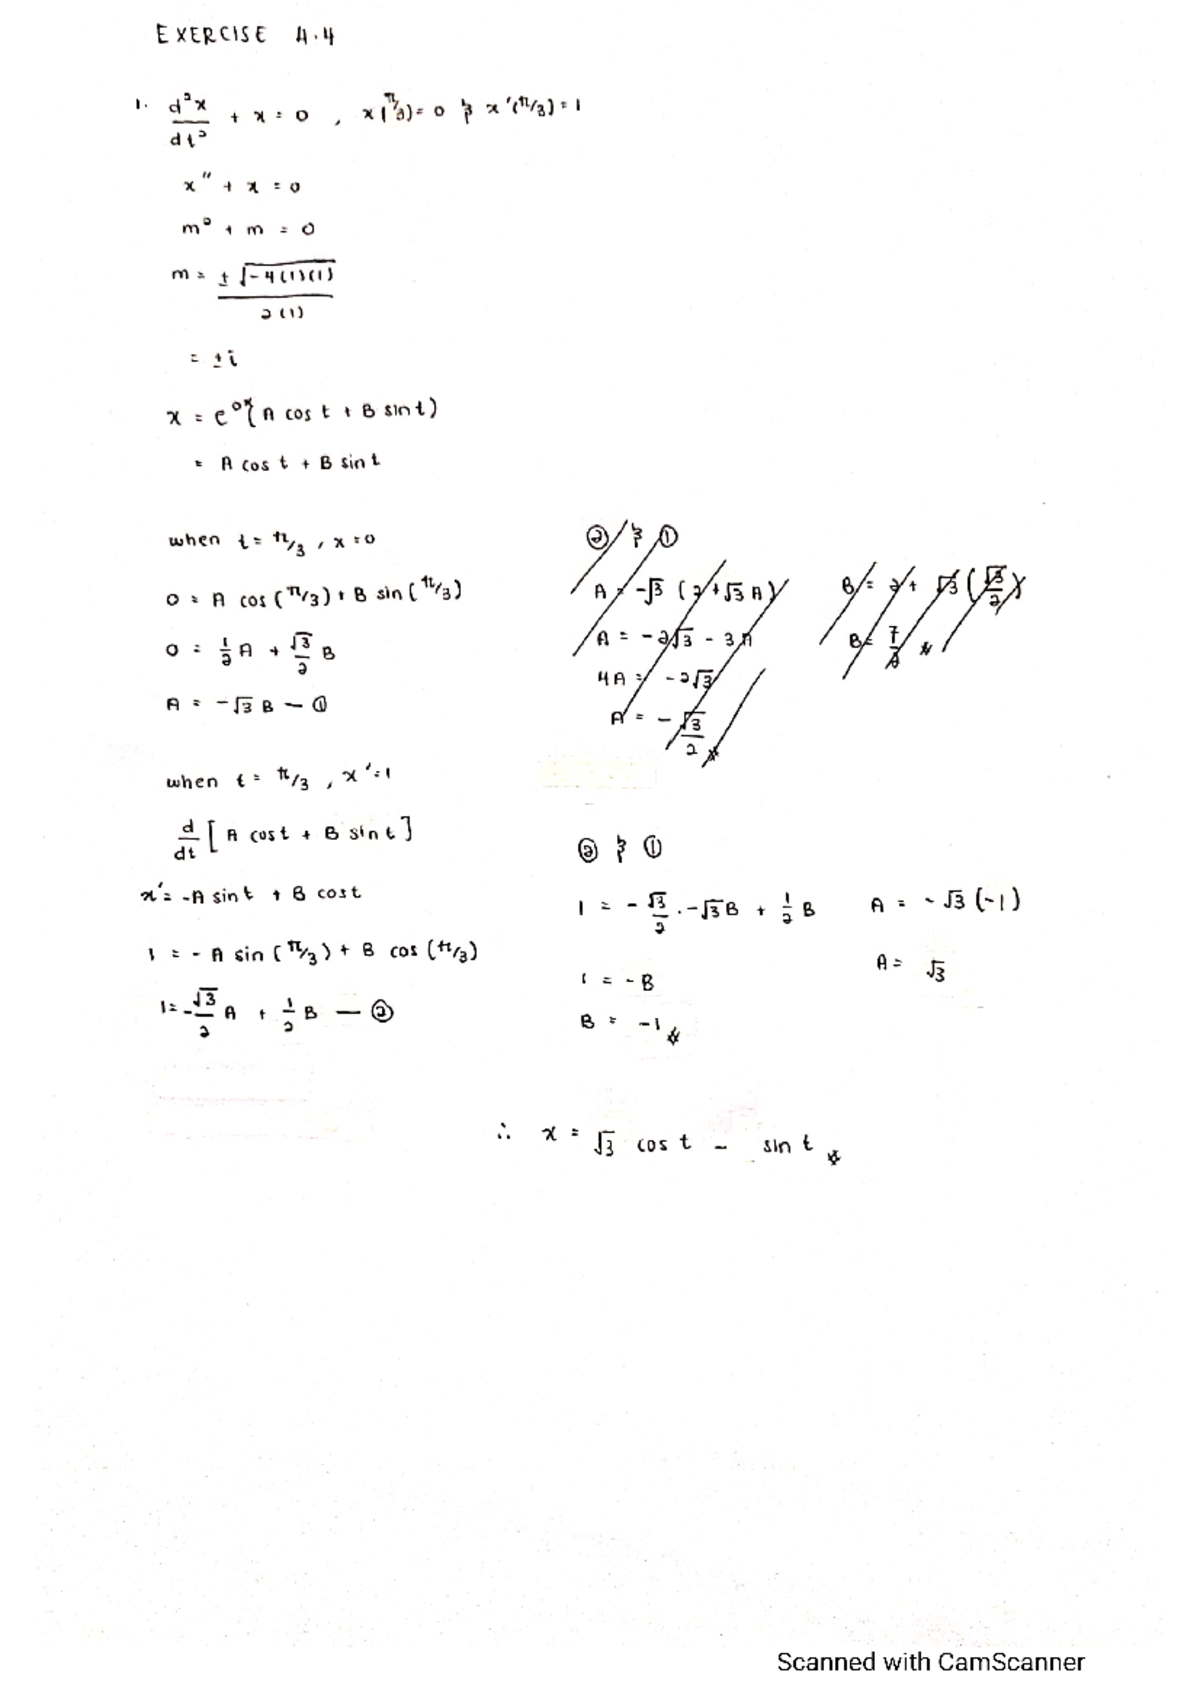 EXERCISE 4.4
1. d²x/dt² + x = 0 , x(π/3) = 0 & x'(π/3) = 1
x'' + x = 0
m² + m = 0
m = ± √-4(1)(1) / 2(1)
= ± i
x = e^0x (A cos t + B sin t)
= A cos t + B sin t
when t = π/3 , x = 0
0 = A cos (π/3) + B sin (π/3)
0 = 1/2 A + √3/2 B
A = -√3 B — ①
when t = π/3 , x' = 1
d/dt [A cos t + B sin t]
x' = -A sin t + B cos t
1 = - A sin (π/3) + B cos (π/3)
1 = -√3/2 A + 1/2 B — ②
② & ①
A = -√3 (2 + √3 A)
A = -2√3 - 3A
4A = -2√3
A = - √3/2
B = 2 + √3 (√3/2)
B = 7/2
② & ①
1 = - √3/2 . -√3 B + 1/2 B
1 = - B
B = -1
A = - √3 (-1)
A = √3
∴ x = √3 cos t - sin t
Scanned with CamScanner